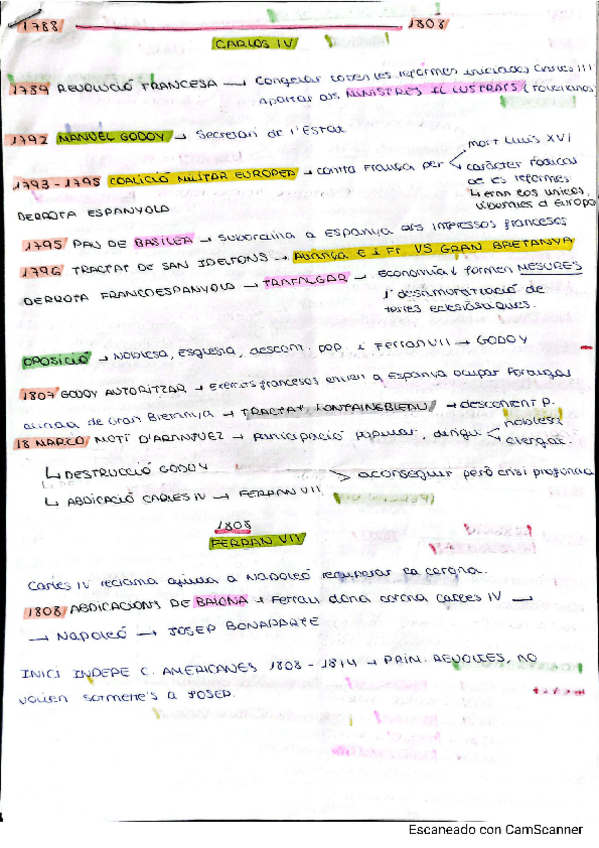 1788 1808
CARLOS IV
1789 REVOLUCIÓ FRANCESA → Congelar totes les reformes iniciades Carles III
apartar als MINISTRES IL·LUSTRATS (
1792 MANUEL GODOY → Secretari de l'Estat
mort Lluís XVI
1793-1795 COALICIÓ MILITAR EUROPEA → contra França per caràcter radical
de les reformes
↳ eran los unicos
liberales d Europa
DERROTA ESPANYOLA
1795 PAU DE BASILEA → subordina a Espanya als interessos francesos
1796 TRACTAT DE SAN IDELFONS → Aliança E i Fr VS GRAN BRETANYA
DERROTA FRANCOESPANYOLA → TRAFALGAR → economia ↓ formen MESURES
l'desamortització de
terres eclesiàstiques.
OPOSICIÓ → Noblesa, esglesia, descom. pop. i Ferran VII → GODOY
1807 GODOY AUTORITZAR → Exèrcits francesos entren a Espanya ocupar Portugal
aliada de Gran Bretnya → TRACTAT FONTAINEBLEAU → descontent p.
18 MARÇO MOTÍ D'ARANJUEZ → Participació popular, dirigit noblesa
clergat.
↳ DESTRUCCIÓ GODOY
aconseguir però crisi profunda
↳ ABDICACIÓ CARLES IV → FERRAN VII
1808
FERRAN VII
Carles IV reclama ajuda a Napoleó recuperar la corona.
1808 ABDICACIONS DE BAIONA → Ferran dona corona Carles IV →
→ Napoleó → JOSEP BONAPARTE
INICI INDEPE C. AMERICANES 1808-1814 → PRIM. REVOLTES, NO
volien sotmetre's a JOSEP.
Escaneado con CamScanner